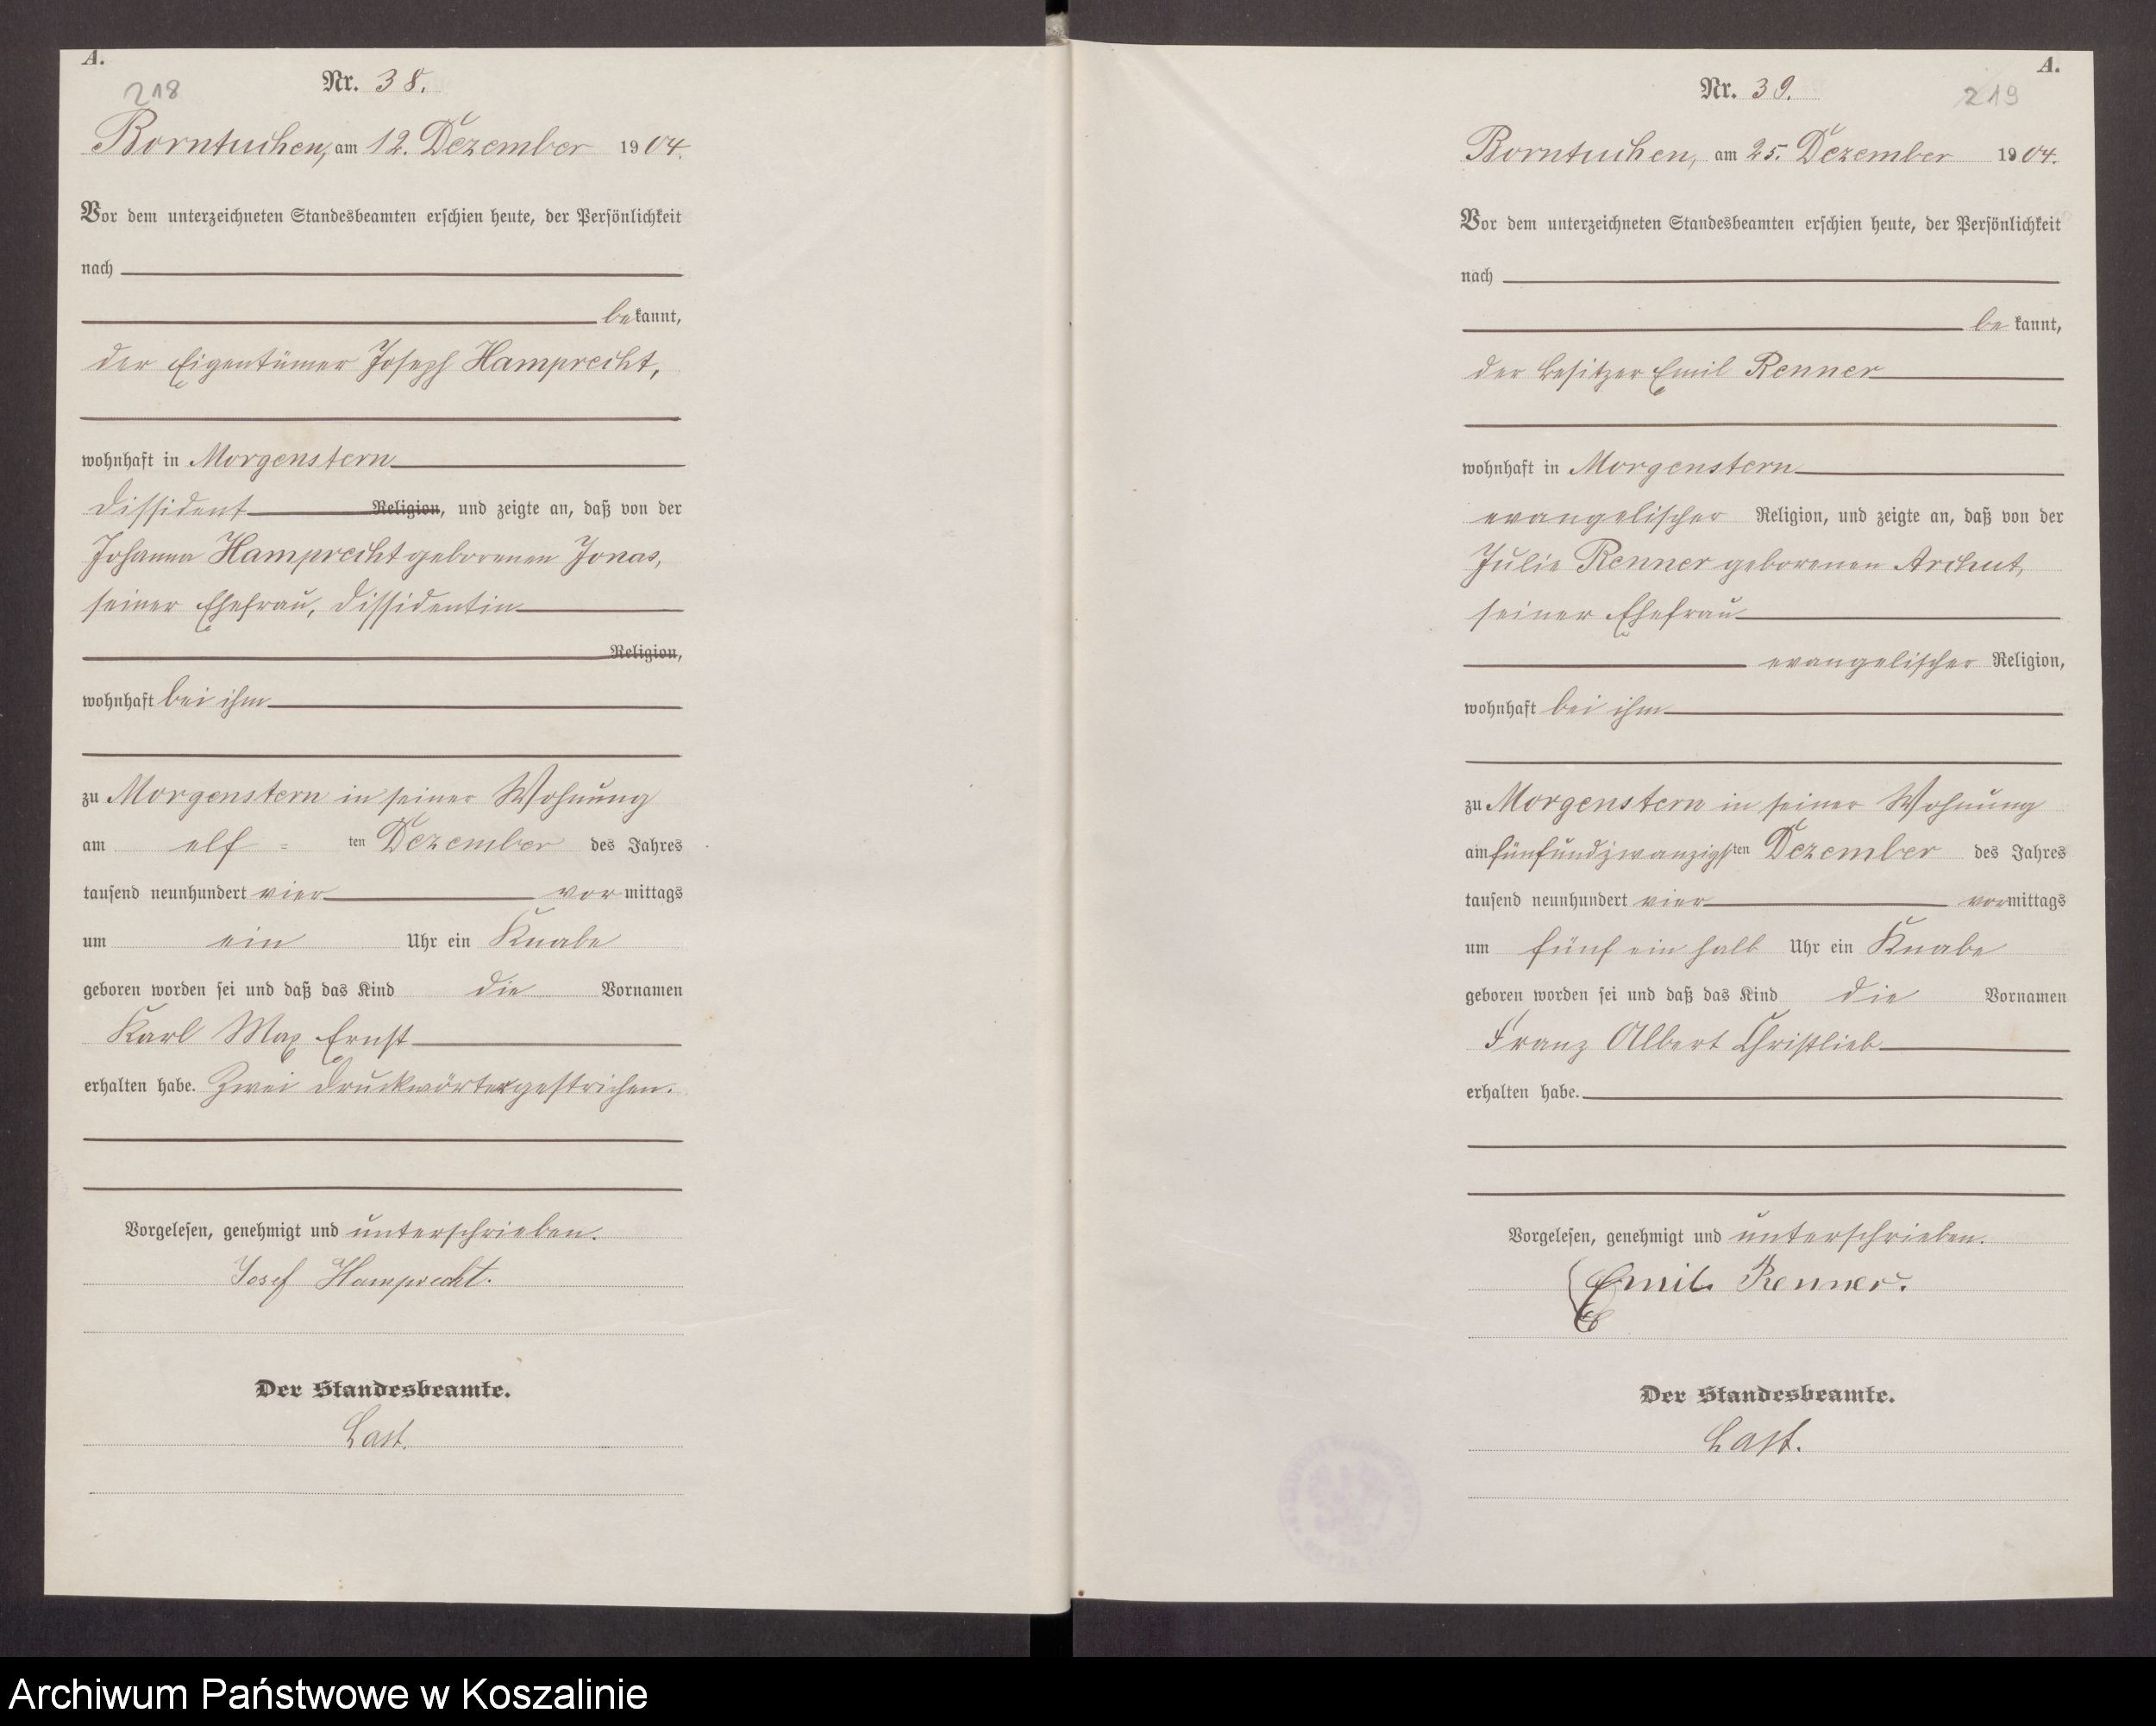 A.
218
Nr. 38.
Borntuchen, am 12. Dezember 1904.
Vor dem unterzeichneten Standesbeamten erschien heute, der Persönlichkeit
nach
bekannt,
der Eigentümer Joseph Hamprecht,
wohnhaft in Morgenstern
Dissident Religion, und zeigte an, daß von der
Johanna Hamprecht geborenen Jonas,
seiner Ehefrau, Dissidentin
Religion,
wohnhaft bei ihm
zu Morgenstern in seiner Wohnung
am elf = ten Dezember des Jahres
tausend neunhundert vier vormittags
um ein Uhr ein Knabe
geboren worden sei und daß das Kind die Vornamen
Karl Max Ernst
erhalten habe. Zwei Druckwörter gestrichen.
Vorgelesen, genehmigt und unterschrieben.
Josef Hamprecht.
Der Standesbeamte.
Last.
A.
Nr. 39.
219
Borntuchen, am 25. Dezember 1904.
Vor dem unterzeichneten Standesbeamten erschien heute, der Persönlichkeit
nach
bekannt,
der Besitzer Emil Renner
wohnhaft in Morgenstern
evangelischer Religion, und zeigte an, daß von der
Julie Renner geborenen Archut,
seiner Ehefrau
evangelischer Religion,
wohnhaft bei ihm
zu Morgenstern in seiner Wohnung
am fünfundzwanzigsten Dezember des Jahres
tausend neunhundert vier vormittags
um fünf ein halb Uhr ein Knabe
geboren worden sei und daß das Kind die Vornamen
Franz Albert Christlieb
erhalten habe.
Vorgelesen, genehmigt und unterschrieben.
Emil Renner.
Der Standesbeamte.
Last.
Archiwum Państwowe w Koszalinie